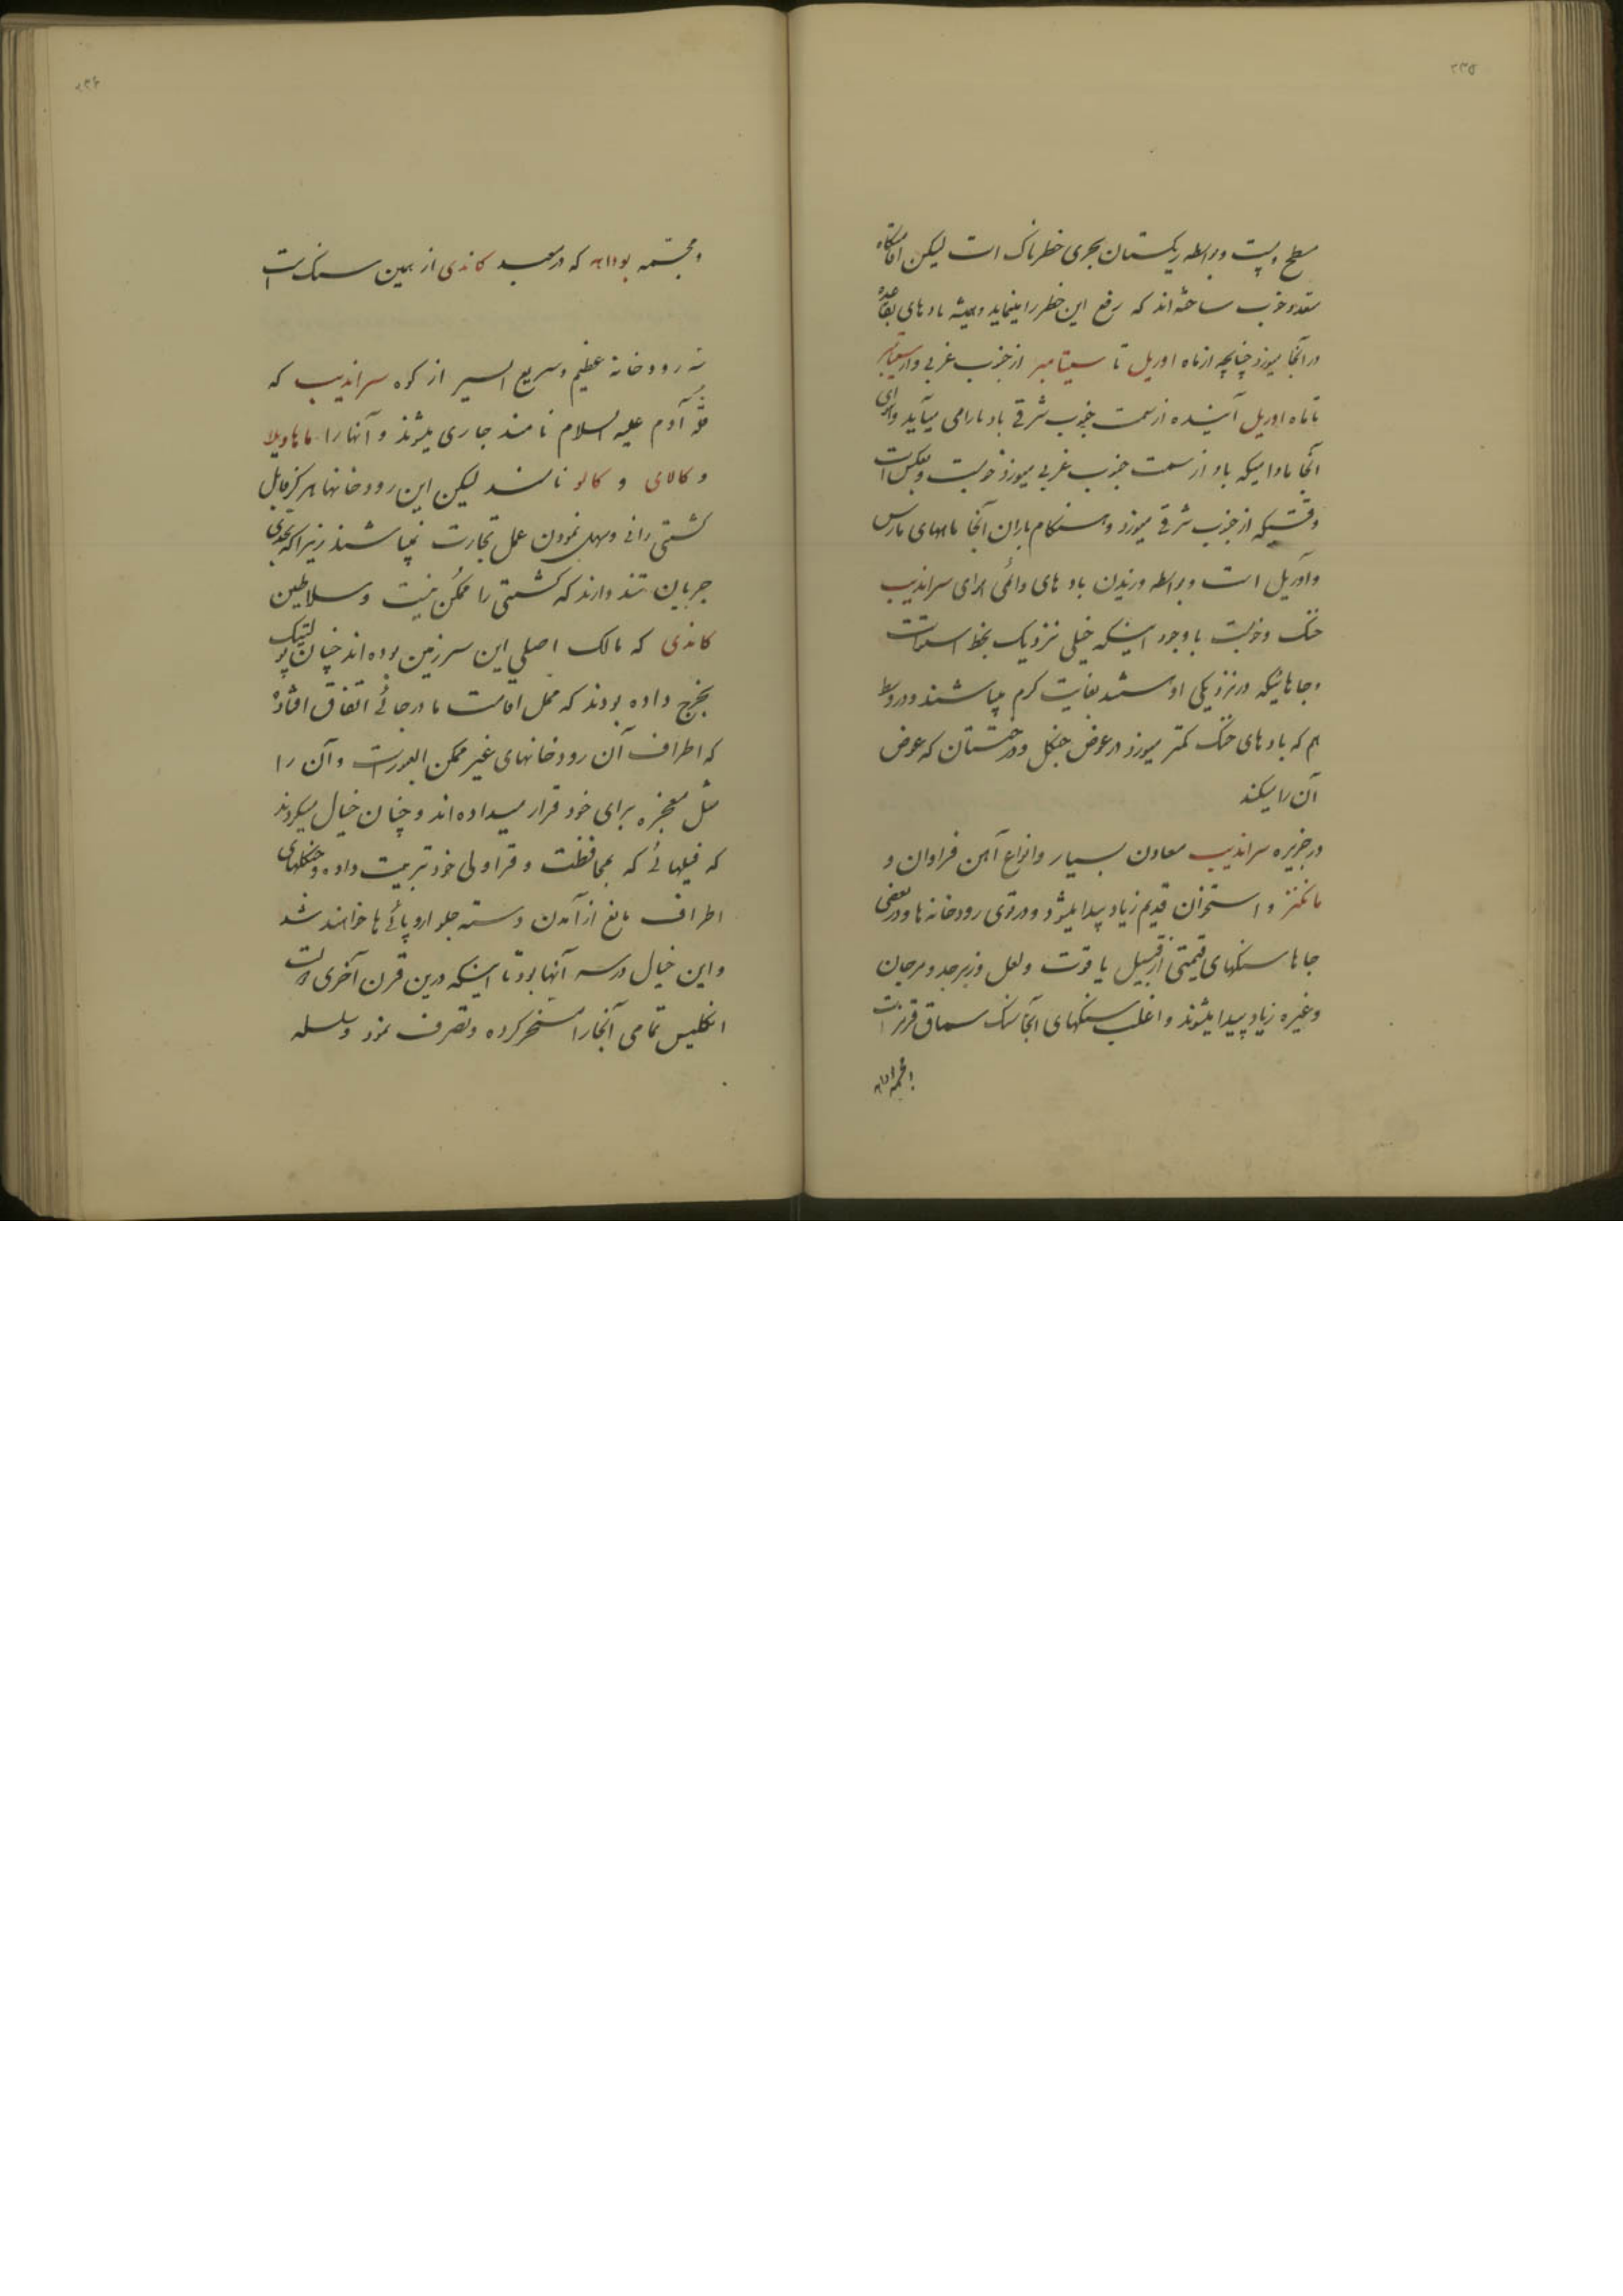 ۲۲۵
مسطح و پست و بواسطه ریکستان بحری خطرناک است لیکن
متعدد خوب ساخته‌اند که رفع این خطر را مینماید و همیشه بادهای بقاعده
در آنجا میوزد چنانچه از ماه اوریل تا سپتامبر از جنوب غربی و از سپتامبر
تا ماه اوریل آینده از سمت جنوب شرقی باد بارامی میآید و هوای
آنجا مادامیکه باد از سمت جنوب غربی میوزد خوبست و بعکس است
وقتیکه از جنوب شرقی میوزد و هنکام باران آنجا ماههای مارس
و آوریل است و بواسطه وزیدن بادهای دائمی هوای سراندیب
خنک و خوبست با وجود اینکه خیلی نزدیک بخط استوا است
و جاهائیکه در نزدیکی او هستند بغایت کرم میباشند و در وسط
هم که بادهای خنک کمتر میوزد در عوض جنکل و درختستان که عوض
آن را میکند
در جزیره سراندیب معادن بسیار و انواع آهن فراوان و
مانکنز و استخوان قدیم زیاد پیدا میشود و در توی رودخانه‌ها و در بعضی
جاها سنکهای قیمتی از قبیل یاقوت و لعل و زبرجد و مرجان
و غیره زیاد پیدا میشوند و اغلب سنکهای آنجا سنک سماق قرمز است
۲۲۶
و مجسمه بودا که در معبد کاندی از همین سنک است
نه رودخانه عظیم و سریع السیر از کوه سراندیب که
قلّهٔ آدم علیه السلام نامند جاری میشوند و آنها را ماهاویلا
و کالای و کالو نامند لیکن این رودخانها هرکز قابل
کشتی رانی و سهل نمودن عمل تجارت نمیباشند زیراکه بحدی
جریان تند دارند که کشتی را ممکن نیست و سلاطین
کاندی که مالک اصلی این سرزمین بوده‌اند چنان پولتیک
بخرج داده بودند که محل اقامت ما در جائی اتفاق افتاده
که اطراف آن رودخانهای غیر ممکن العبور است و آن را
مثل معجزه برای خود قرار میداده‌اند و چنان خیال میکردند
که فیلهائی که بمحافظت و قراولی خود تربیت داده و جنکلهای
اطراف مانع از آمدن دسته جلو اروپائی‌ها خواهند شد
و این خیال در سر آنها بود تا اینکه درین قرن آخری دولت
انکلیس تمامی آنجا را مسخر کرده و تصرف نمود و سلسله